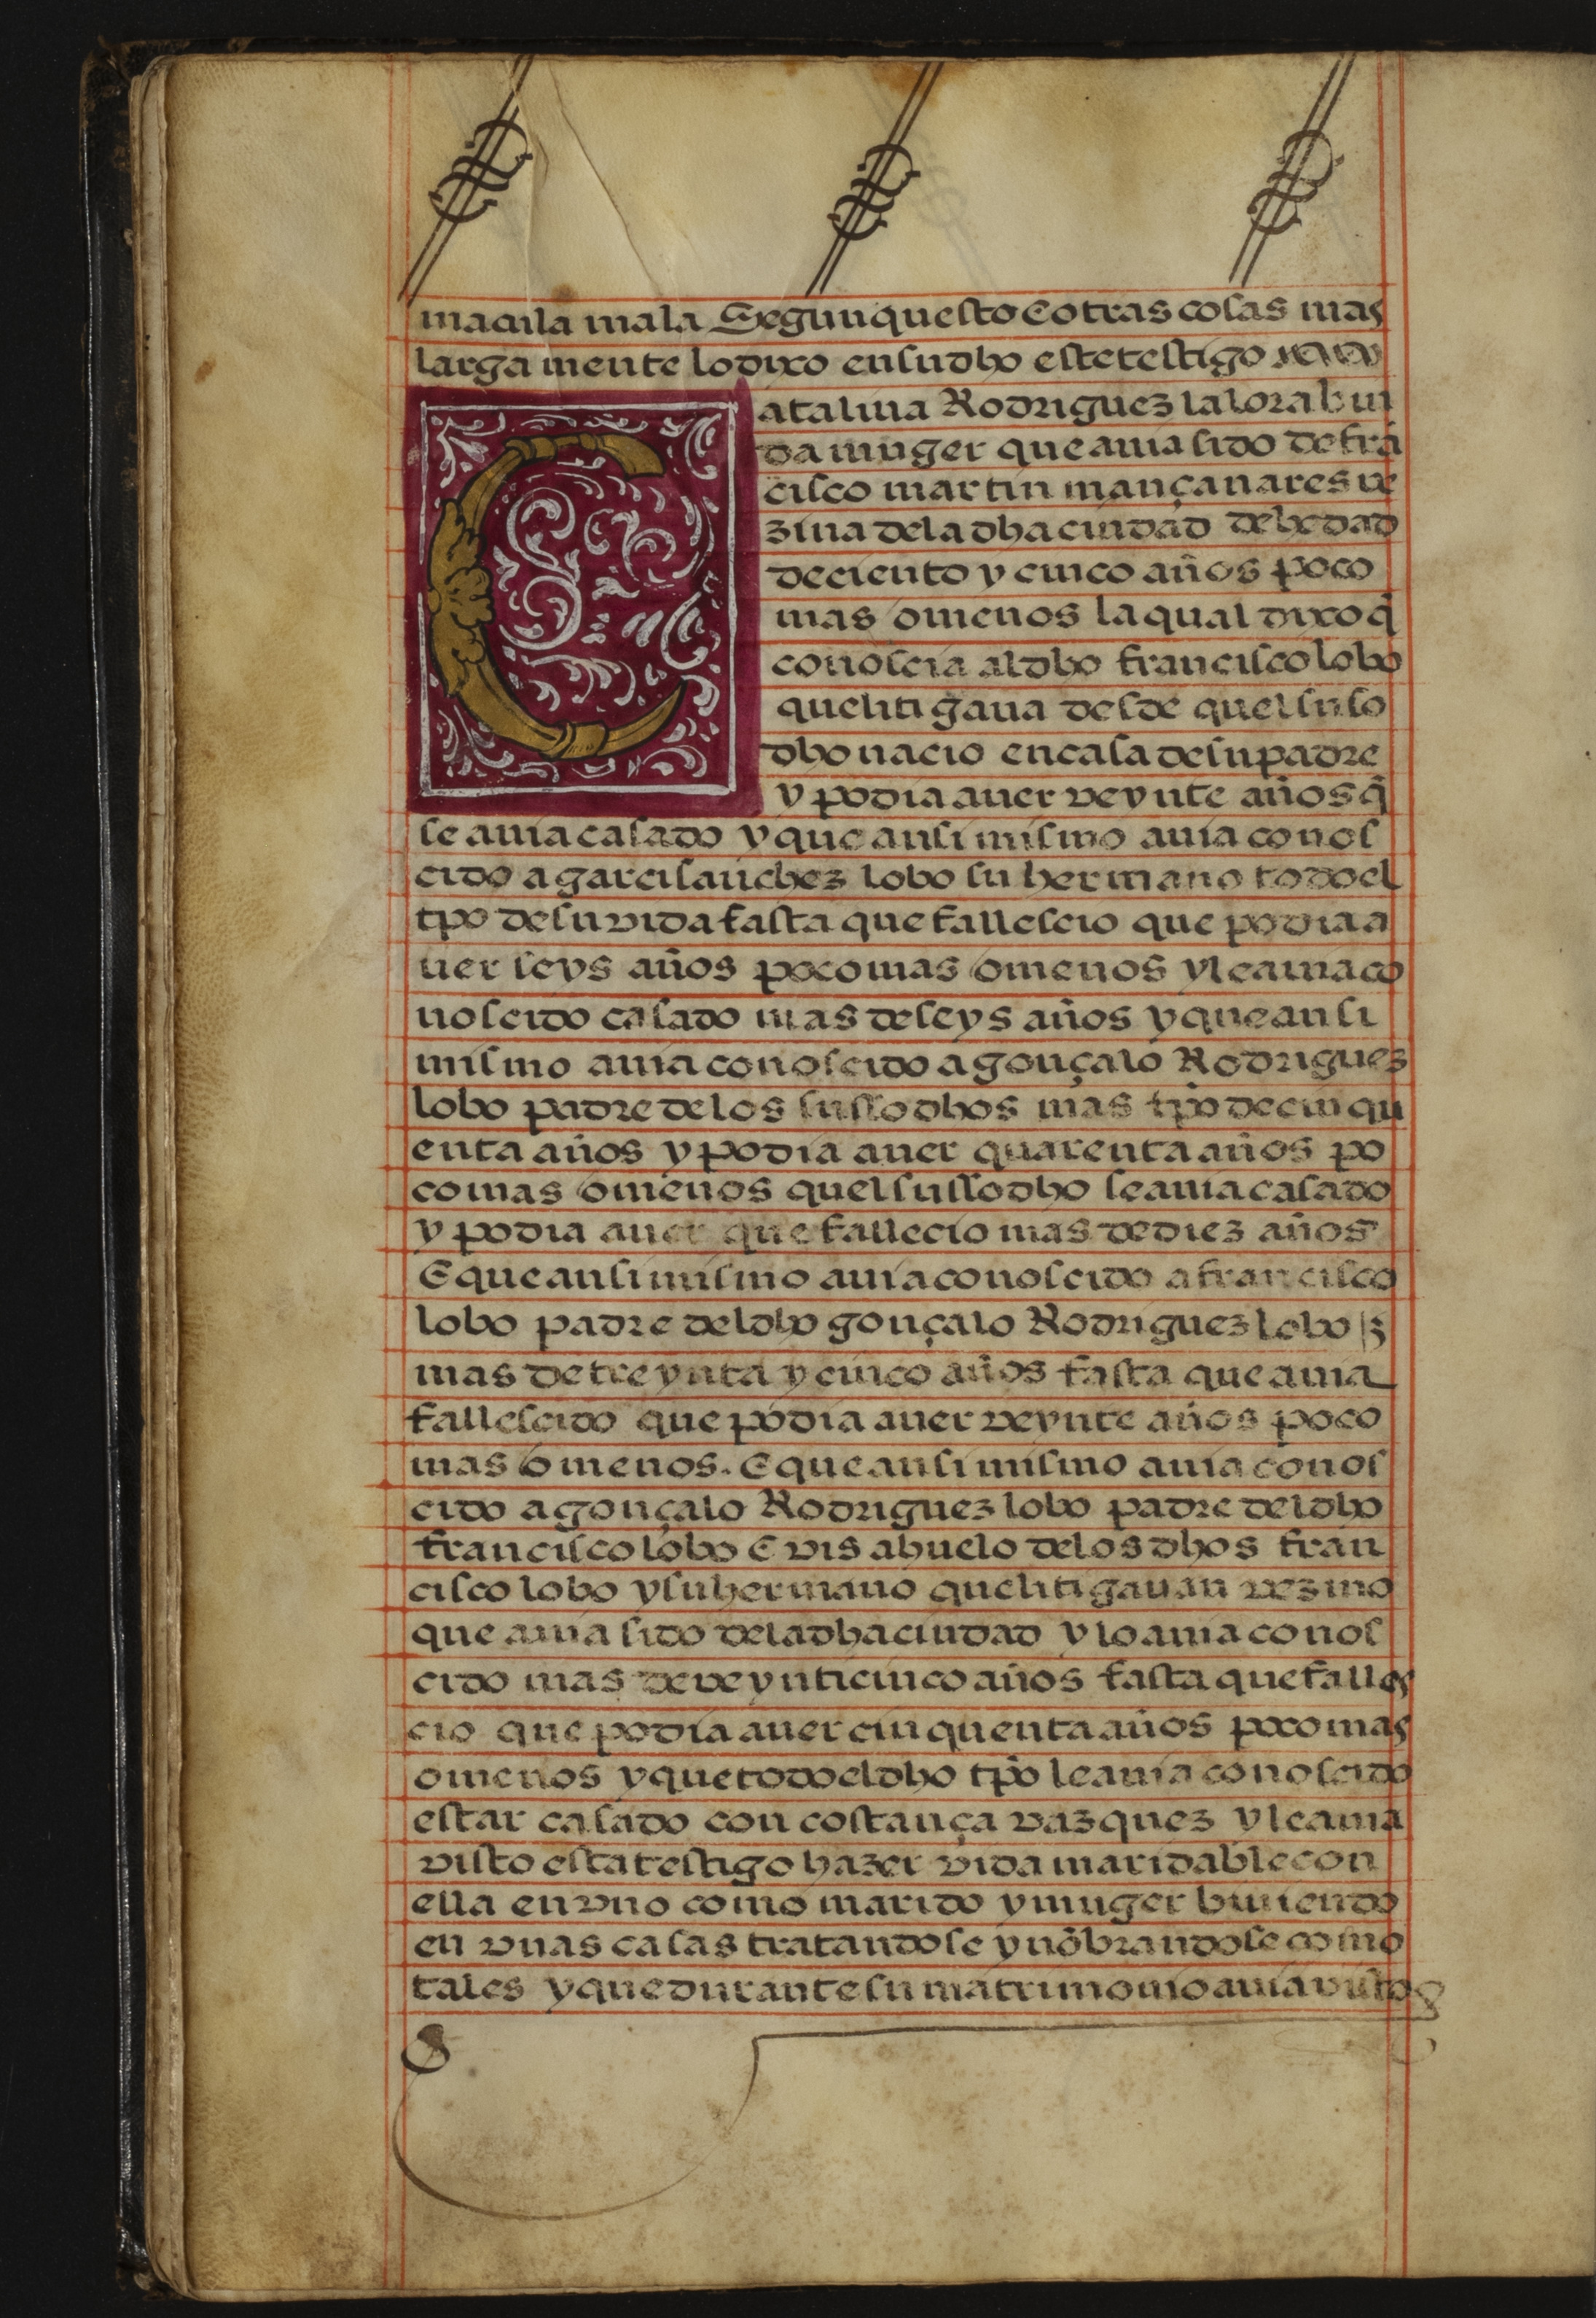 macula mala Segun questo E otras cosas mas
larga mente lo dixo en su dho este testigo
Catalina Rodriguez la lora biu
da muger que auia sido de frã
cisco martin mançanares ve
zina de la dha ciudad de hedad
de ciento y cinco años poco
mas o menos la qual dixo q̃
conoscia al dho francisco lobo
que litigaua desde quel suso
dho nacio en casa de su padre
y podia auer veynte años q̃
se auia casado y que ansi mismo auia conos
cido a garcisanchez lobo su hermano todo el
tp̃o de su vida fasta que fallescio que podia a
uer seys años poco mas o menos y le auia co
noscido casado mas de seys años y que ansi
mismo auia conoscido a gonçalo Rodriguez
lobo padre de los sussodhos mas tp̃o de cinqu
enta años y podia auer quarenta años po
co mas o menos quel sussodho se auia casado
y podia auer que fallecio mas de diez años
E que ansi mismo auia conoscido a francisco
lobo padre del dho gonçalo Rodriguez lobo
mas de treynta y cinco años fasta que auia
fallescido que podia auer veynte años poco
mas o menos. E que ansi mismo auia conos
cido a gonçalo Rodriguez lobo padre del dho
francisco lobo E vis ahuelo de los dhos fran
cisco lobo y su hermano que litigauan vezino
que auia sido de la dha ciudad y lo auia conos
cido mas de veynticinco años fasta que falles
cio que podia auer cinquenta años poco mas
o menos y que todo el dho tp̃o le auia conoscido
estar casado con costança vazquez y le auia
visto esta testigo hazer vida maridable con
ella en vno como marido y muger biuiendo
en vnas casas tratandose y nõbrandose como
tales y que durante su matrimonio auia visto